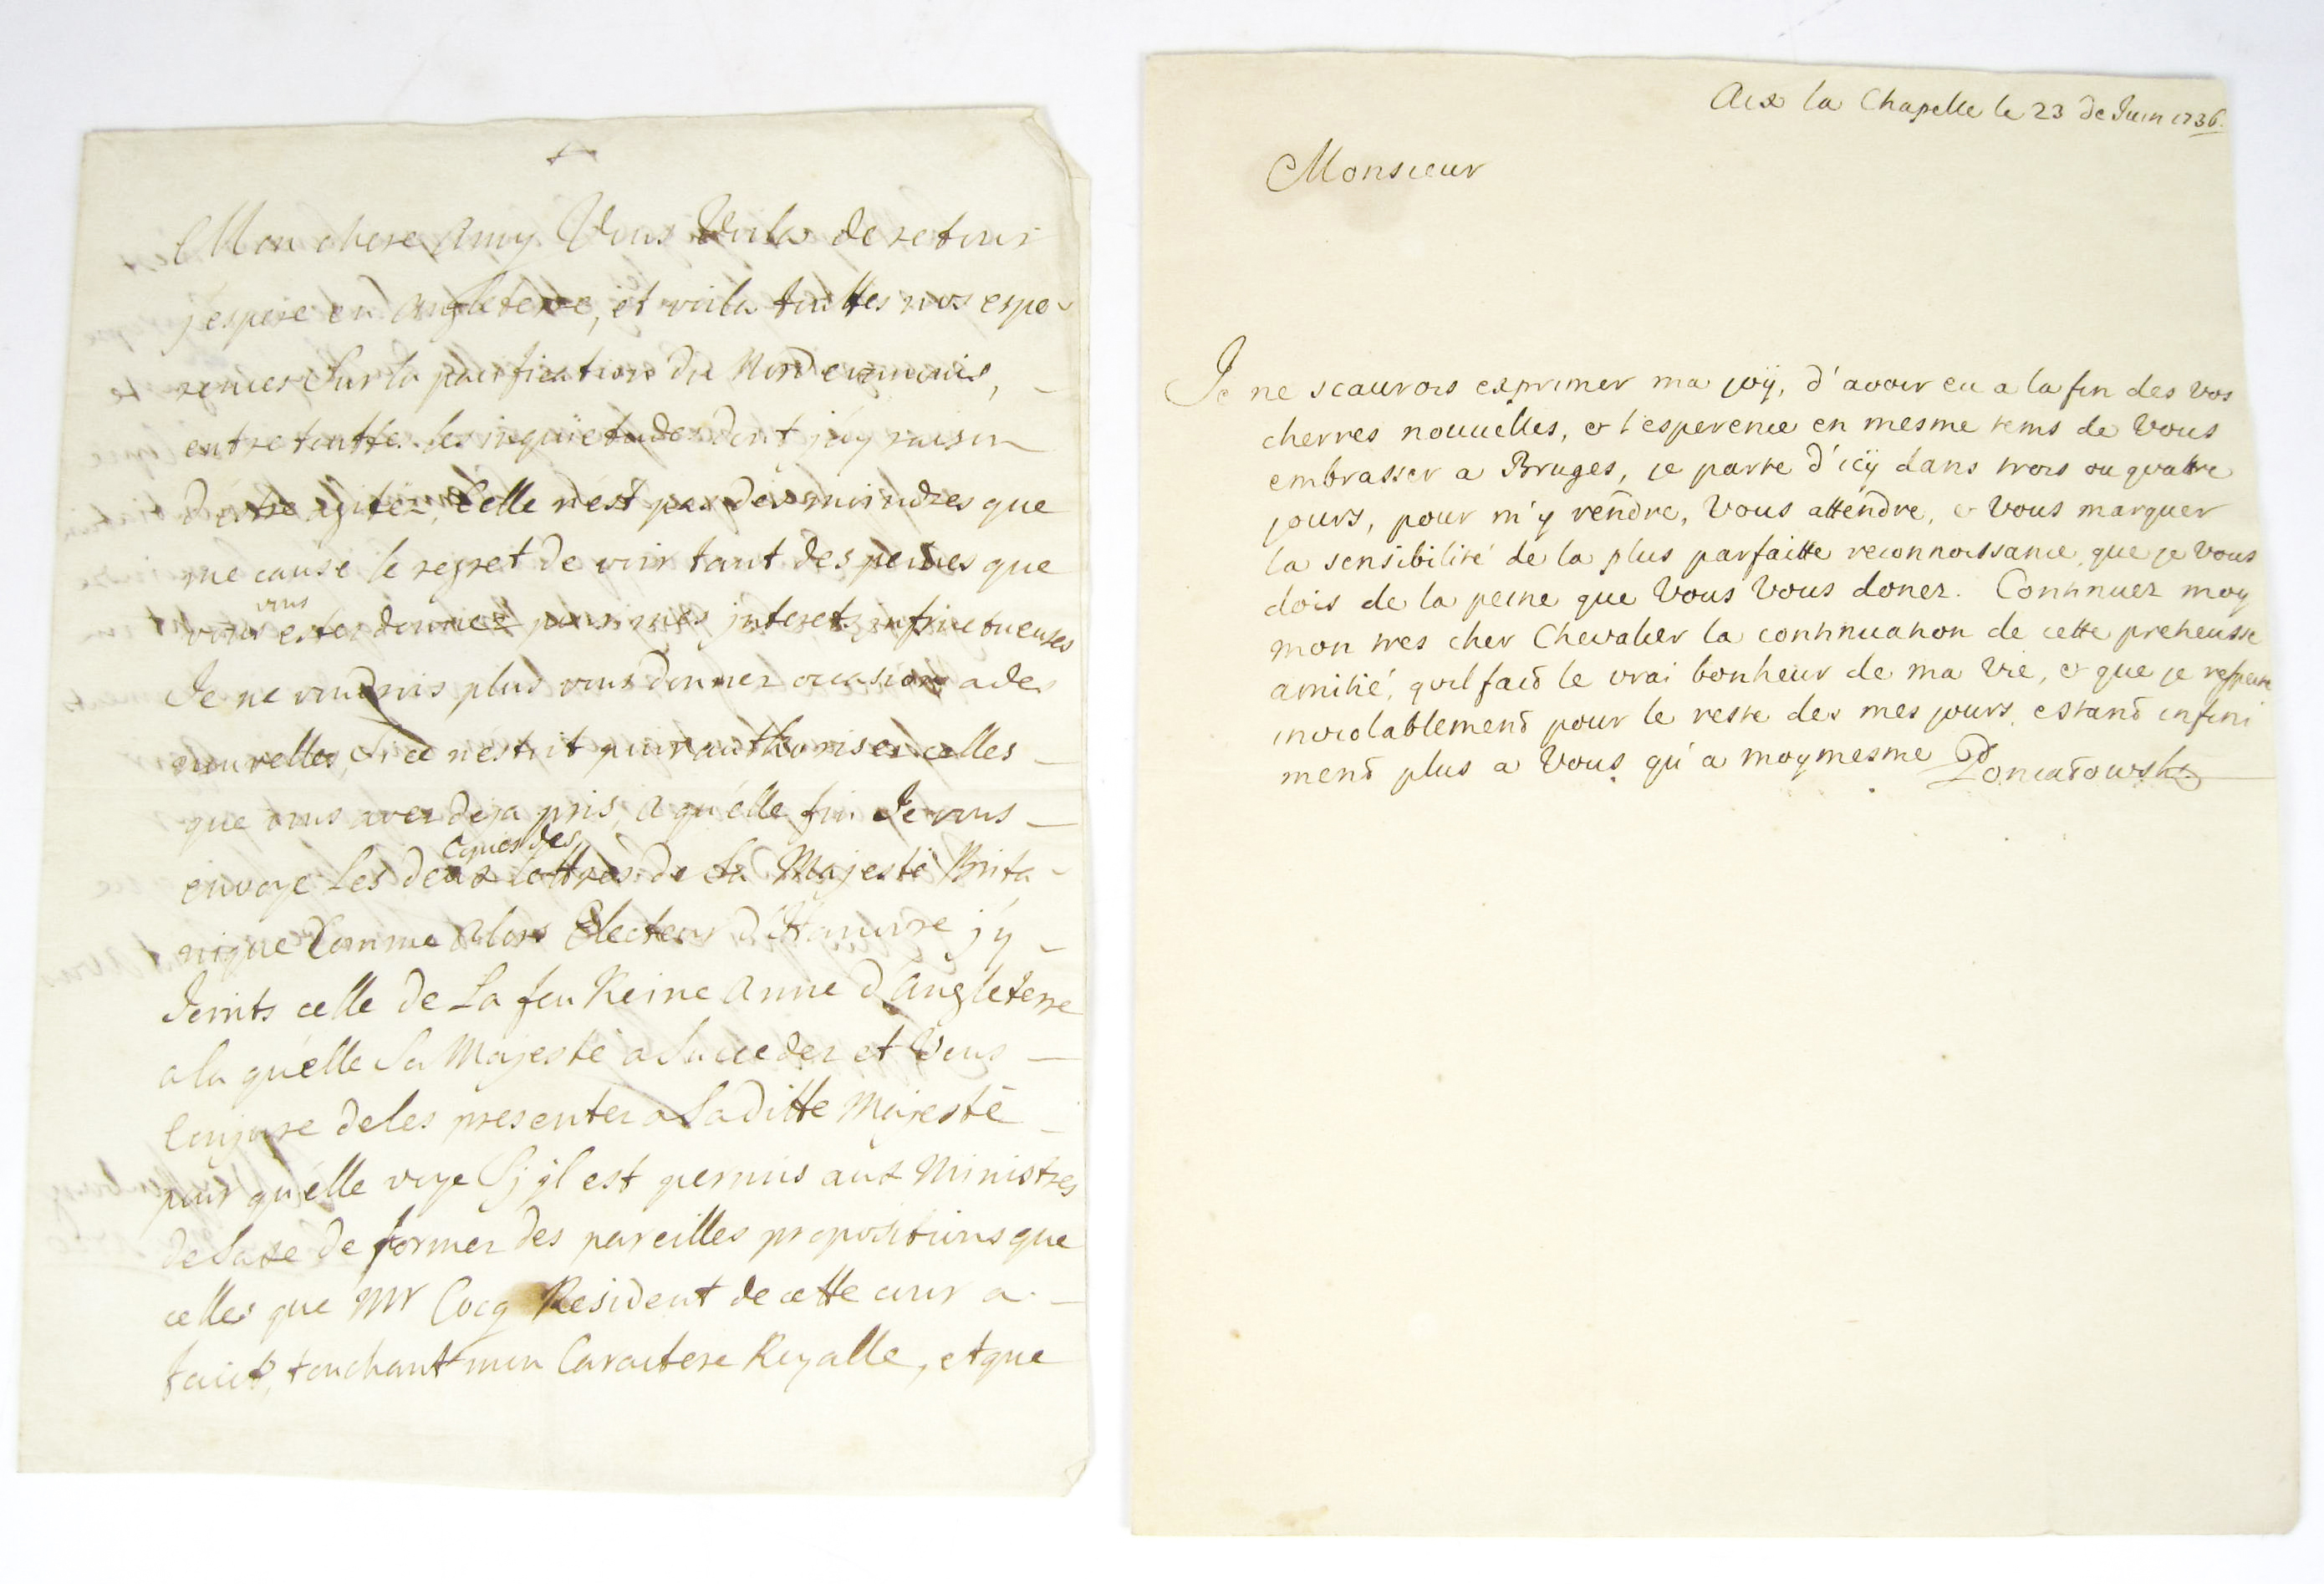 Mon chere Amy Vous Voila de retour
j'espere en Angleterre, et voila touttes nos espe-
rences Sur la pacification du Nord
entre toutte les inquietudes dont j'ay raison
d'estre agitéz, Celle n'est pas des moindres que
me cause le regret de voir tant des peines que
vous
vous estes donnez pour mes jnterets infructueuses
Je ne voudrois plus vous donner occasion a des
nouvelles, Si ce n'estoit pour authoriser celles
que vous avez deja pris, a qu'elle fin Je vous
Copies des
envoye Les deux lettres de Sa Majesté Brita-
nique Comme alors Electeur d'Hanovre j'y
Joints celle de La feu Reine Anne d'Angleterre
a la qu'elle Sa Majesté a Succeder et Vous
Conjure de les presenter a Sa ditte Majesté
pour qu'elle voye Sj jl est permis aux Ministres
de Saxe de former des pareilles propositions que
celles que Mr Cocq Resident de cette cour a
fait, touchant mon Caractere Royalle, et que
Aix la Chapelle le 23 de Juin 1736.
Monsieur
Je ne scaurois exprimer ma joÿ, d'avoir eu a la fin des vos
cherres nouuelles, & l'esperence en mesme tems de Vous
embrasser a Bruges, je parte d'icÿ dans trois ou quatre
jours, pour m'y rendre, Vous attendre, & Vous marquer
la sensibilité de la plus parfaitte reconnoissance, que je Vous
dois de la peine que Vous Vous donez. Continuez moy
mon tres cher Chevalier la continuation de cette pretieusse
amitié, qu'il faid le vrai bonheur de ma Vie, & que je
inviolablemend pour le reste des mes jours, estand infini
mend plus a Vous qu'a moymesme Poniatowski